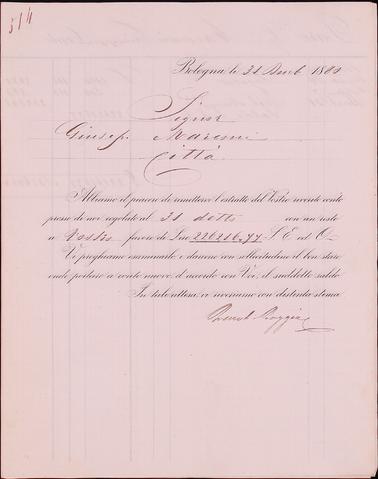 514
Bologna le 31 Dmb 1880
Signor
Giusep. Maresni
Città
Abbiamo il piacere di rimettervi l'estratto del Vostro recente conto
presso di noi regolato al 31 detto con un resto
a Vostro favore di Lire 226216,77 S. E. ed O.
Vi preghiamo esaminarlo e darcene con sollecitudine il ben stare
onde portare a conto nuovo, d'accordo con Voi, il suddetto saldo.
In tale attesa vi riveriamo con distinta stima